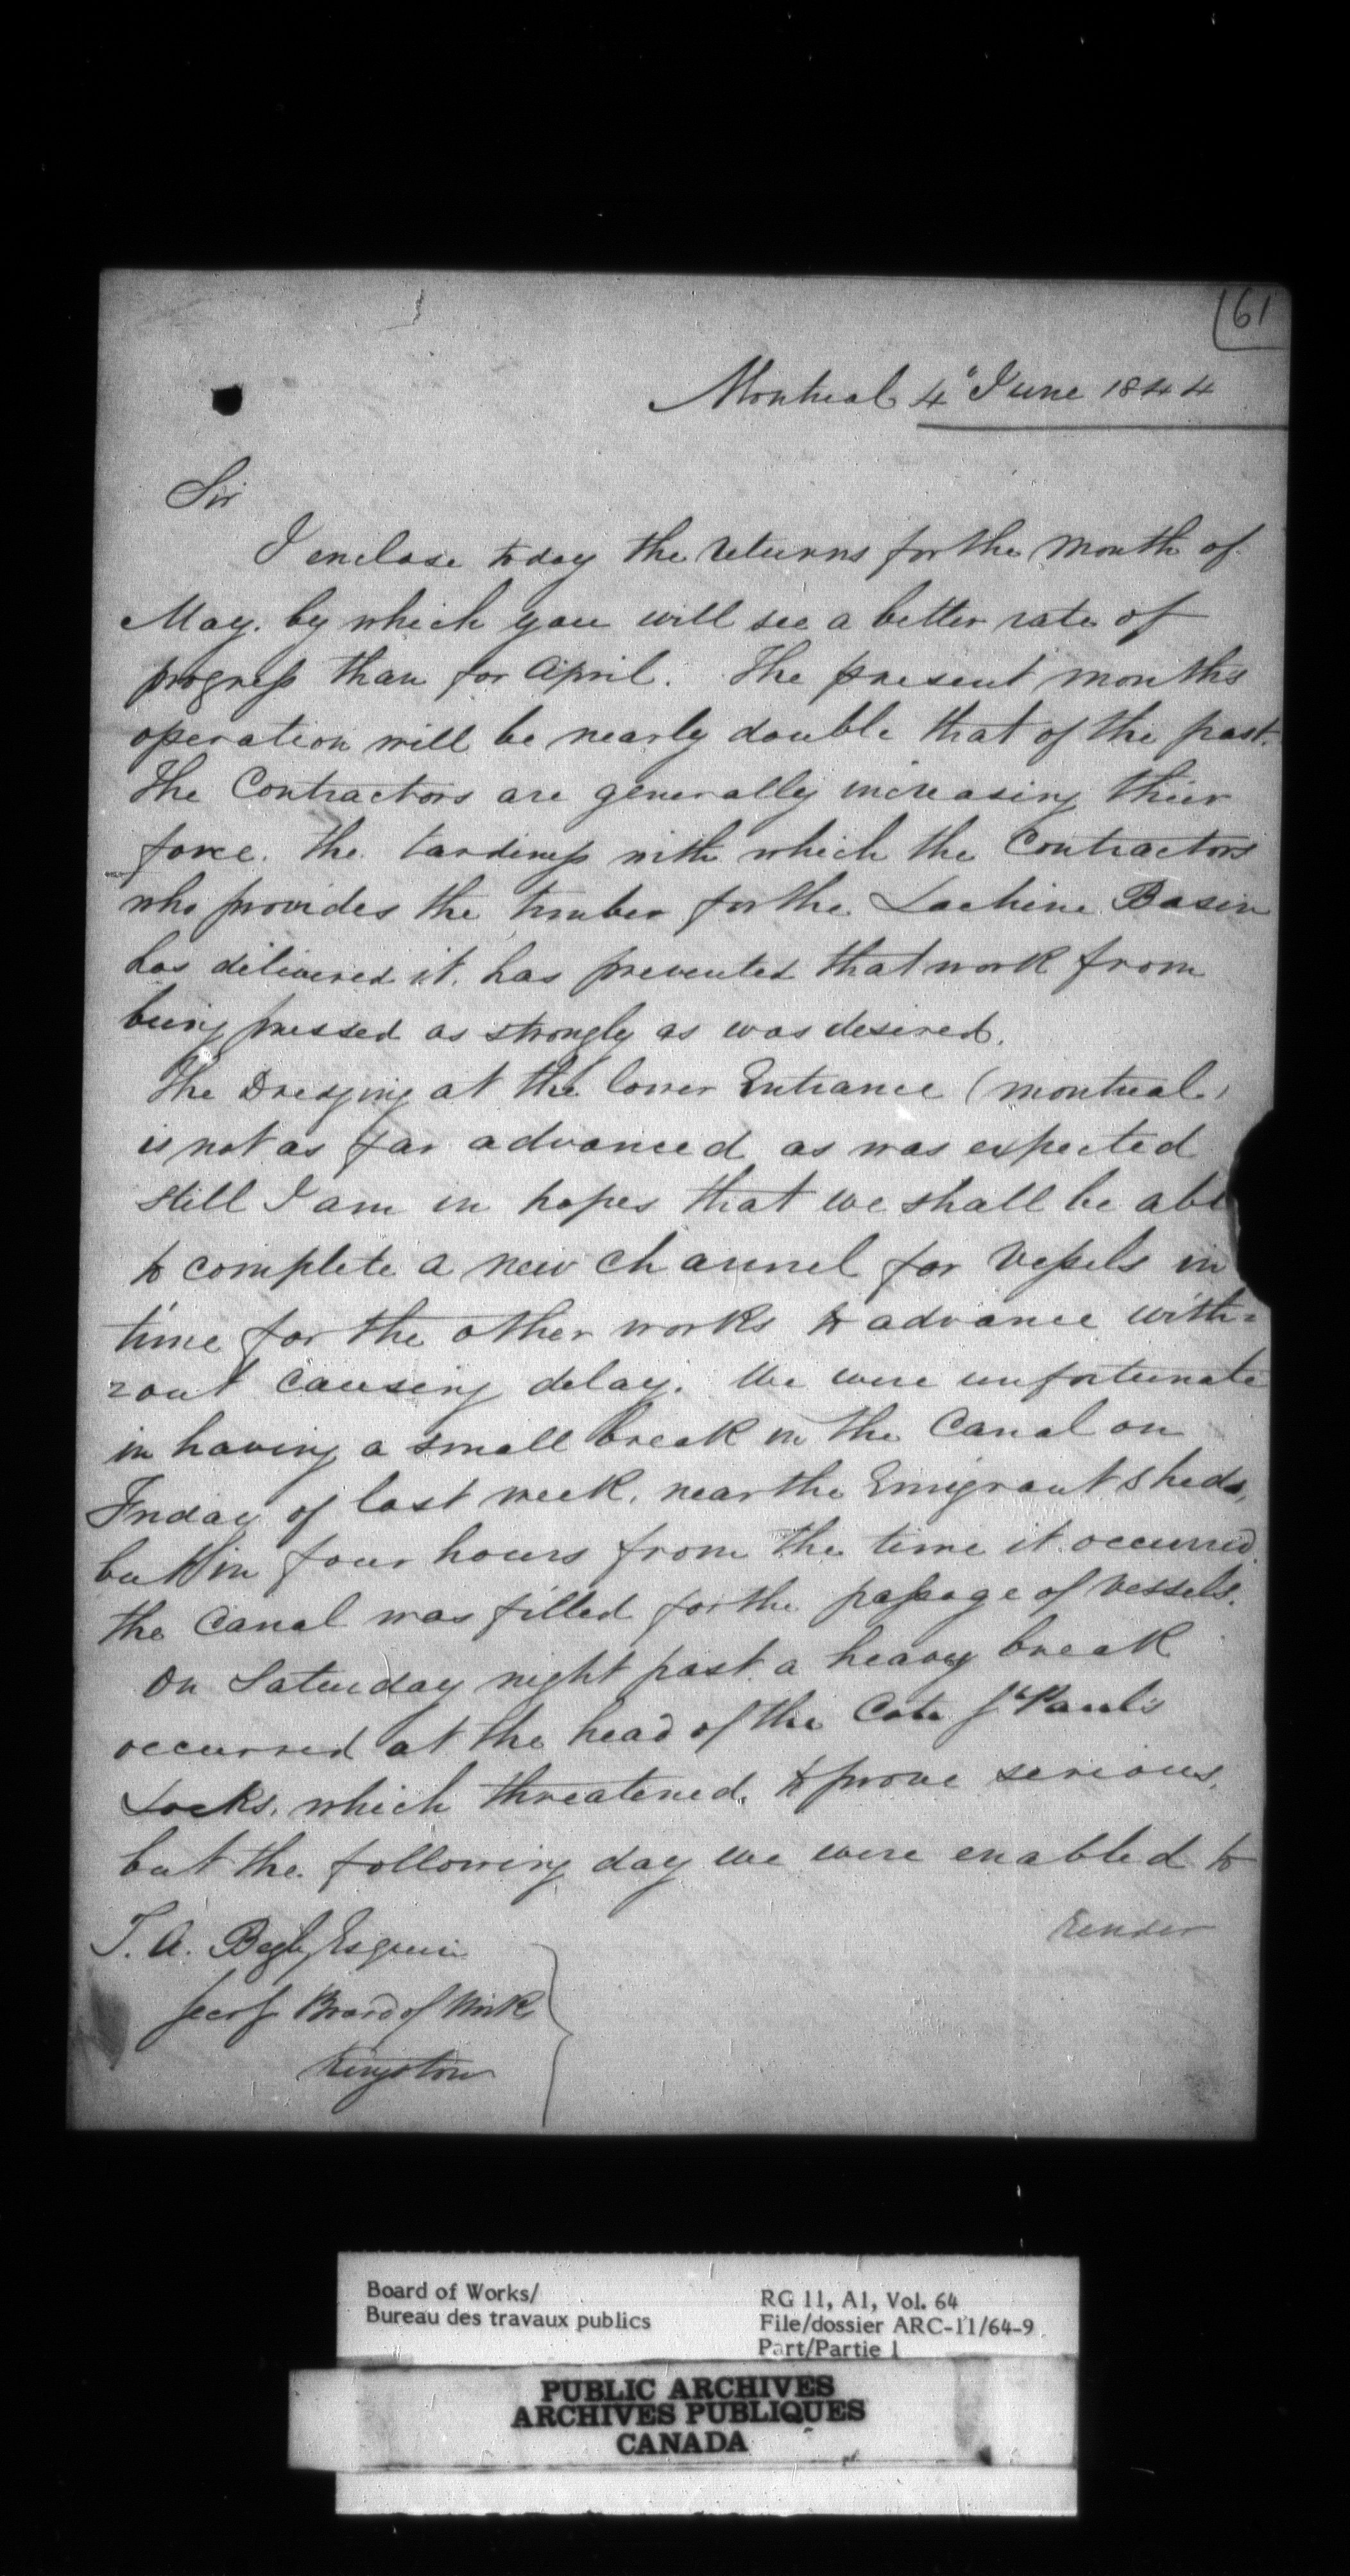 61
Montreal 4° June 1844
Sir
I enclose today the returns for the month of
May. by which you will see a better rate of
progress than for April. The present months
operation will be nearly double that of the past.
The Contractors are generally increasing their
force. the tardiness with which the Contractors
who provides the timber for the Lachine Basin
has delivered it, has prevented that work from
being pressed as strongly as was desired.
The Dredging at the lower Entrance (Montreal)
is not as far advanced as was expected
still I am in hopes that we shall be abl
to complete a new channel for vessels in
time for the other works to advance with=
=out causing delay. We were unfortunate
in having a small break in the Canal on
Friday of last week, near the Emigrant Sheds,
but in four hours from the time it occurred
the Canal was filled for the passage of vessels.
On Saturday night past a heavy break
occurred at the head of the Cote St Paul's
Locks, which threatened, to prove serious,
but the following day we were enabled to
render
T. A. Begly Esquire
Secy Board of Works
Kingston
Board of Works/
Bureau des travaux publics
RG 11, A1, Vol. 64
File/dossier ARC-11/64-9
Part/Partie 1
PUBLIC ARCHIVES
ARCHIVES PUBLIQUES
CANADA